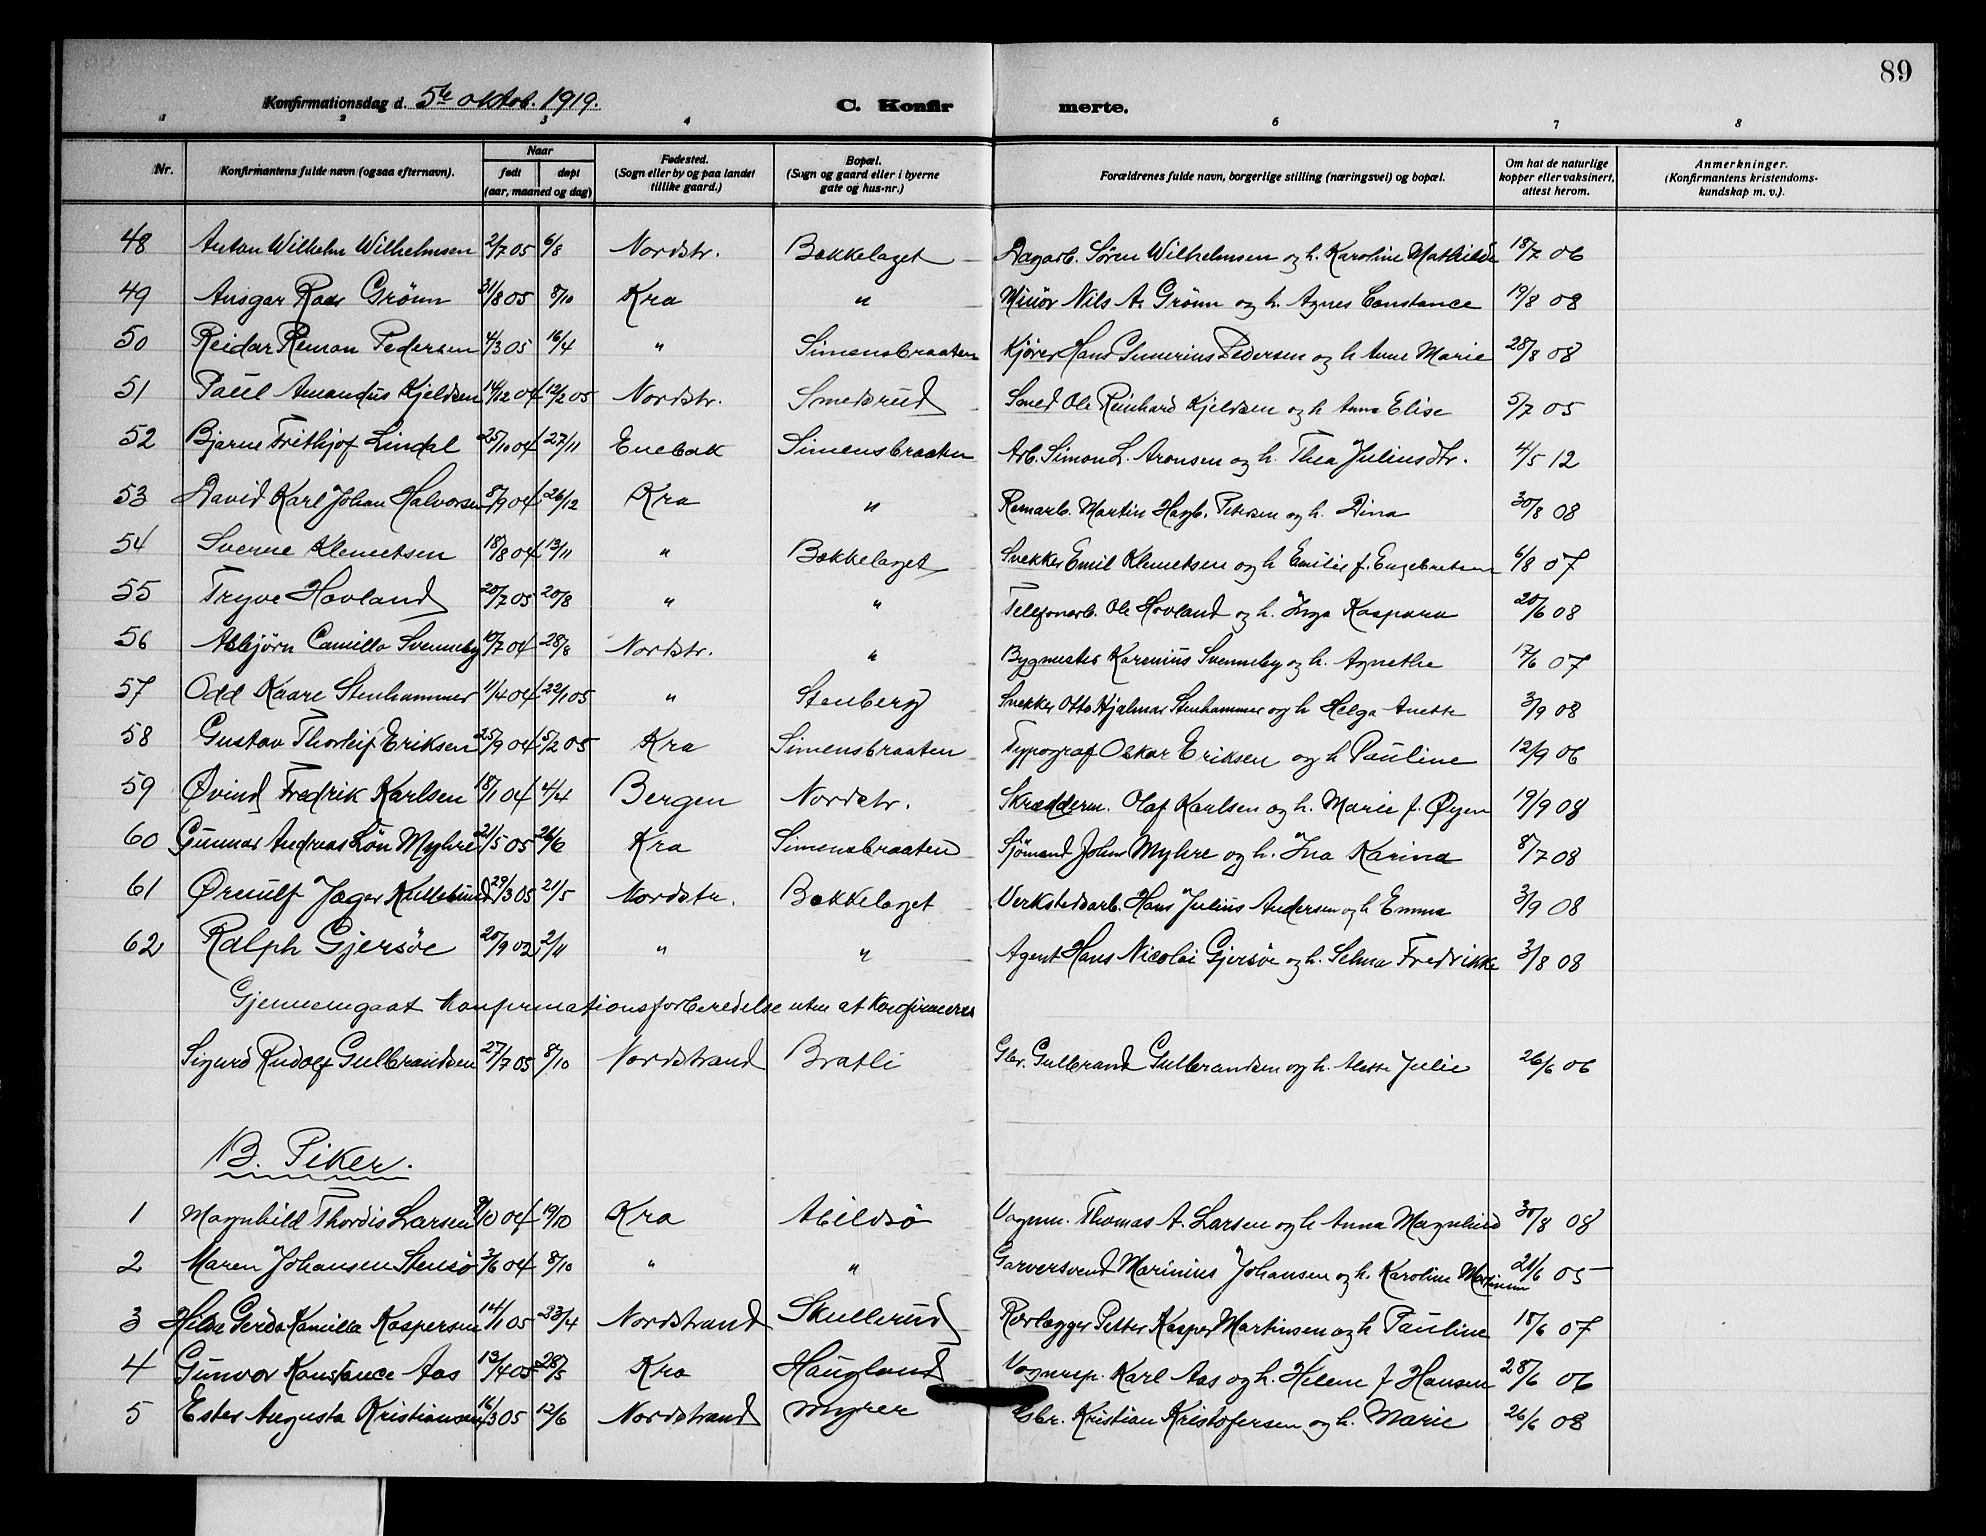 89
Konfirmationsdag d. 5te oktob. 1919. C. Konfirmerte.
1 2 3 4 5 6 7 8
Nr. Konfirmantens fulde navn (ogsaa efternavn). Naar født døpt (aar, maaned og dag) Fødested. (Sogn eller by og paa landet tillike gaard.) Bopæl. (Sogn og gaard eller i byerne gate og hus-nr.) Forældrenes fulde navn, borgerlige stilling (næringsvei) og bopæl. Om hat de naturlige kopper eller vaksinert, attest herom. Anmerkninger. (Konfirmantens kristendomskundskap m. v.).
48 Anton Wilhelm Wilhelmsen 2/7 05 6/8 Nordstr. Bækkelaget Dagarb. Søren Wilhelmsen og h. Karoline Mathilde 18/7 06
49 Ansgar Roar Grönn 31/8 05 8/10 Kra " Minör Nils A. Grönn og h. Agnes Constance 19/8 08
50 Reidar Reman Pedersen 4/3 05 16/4 " Simensbraaten Kjører Hans Gunerius Pedersen og h Anne Marie 28/8 08
51 Paul Amandus Kjeldsen 14/12 04 12/2 05 Nordstr. Smedsrud Smed Ole Reinhard Kjeldsen og h Anna Elise 5/7 05
52 Bjarne Frithjof Lindal 25/10 04 27/11 Enebak Simensbraaten Arb. Simon L. Aronsen og h. Thea Juliusdtr. 4/5 12
53 David Karl Johan Halvorsen 8/9 04 26/12 Kra " Remarb. Martin Hagb. Petersen og h. Dina 30/8 08
54 Sverre Klemetsen 18/8 04 13/11 " Bækkelaget Snekker Emil Klemetsen og h Emilie f. Engebretsen 6/8 07
55 Trygve Hovland 20/7 05 20/8 " " Telefonarb. Ole Hovland og h. Inga Kaspara 20/6 08
56 Asbjörn Camillo Svenneby 10/7 04 28/8 Nordstr. " Bygmester Karenius Svenneby og h. Agnethe 17/6 07
57 Odd Kaare Stenhammer 11/4 04 22/1 05 " Stenberg Snekker Otto Hjalmar Stenhammer og h Helga Anette 3/9 08
58 Gustav Thorleif Eriksen 25/9 04 5/2 05 Kra Simensbraaten Typograf Oskar Eriksen og h Pauline 12/9 06
59 Øvind Fredrik Karlsen 18/1 04 4/4 Bergen Nordstr. Skrædderm. Olaf Karlsen og h. Marie f. Øyen 19/9 08
60 Gunnar Andreas Lön Myhre 21/5 05 26/6 Kra Simensbraaten Sjömand Johan Myhre og h. Ina Karina 8/7 08
61 Ørnulf Jæger Kullebund 29/3 05 21/5 Nordstr. Bækkelaget Verkstedsarb. Hans Julius Andersen og h Emma 3/9 08
62 Ralph Gjersøe 20/9 02 2/11 " " Agent Hans Nicolai Gjersøe og h. Selma Fredrikke 3/8 08
Gjennemgaat Konfirmationsforberedelse uten at konfirmeres
Sigurd Rudolf Gulbrandsen 27/7 05 8/10 Nordstrand Bratli Gbr. Gulbrand Gulbrandsen og h. Alette Julie 26/6 06
B. Piker.
1 Magnhild Thordis Larsen 9/10 04 19/10 Kra Abildsö Vognm. Thomas A. Larsen og h Anna Magnhild 30/8 08
2 Maren Johansen Stensö 3/6 04 8/10 " " Garversvend Marinius Johansen og h. Karoline Martinine 21/6 05
3 Helen Gerda Kamilla Kaspersen 14/1 05 23/4 Nordstrand Skullerud Rørlægger Petter Kasper Martinsen og h Pauline 18/6 07
4 Gunvor Konstance Aas 13/4 05 28/5 Kra Haugland Vognrep. Karl Aas og h. Helene f Hansen 28/6 06
5 Ester Augusta Kristiansen 16/3 05 12/6 Nordstrand Myrer Gbr. Kristian Kristofersen og h. Marie 26/6 08